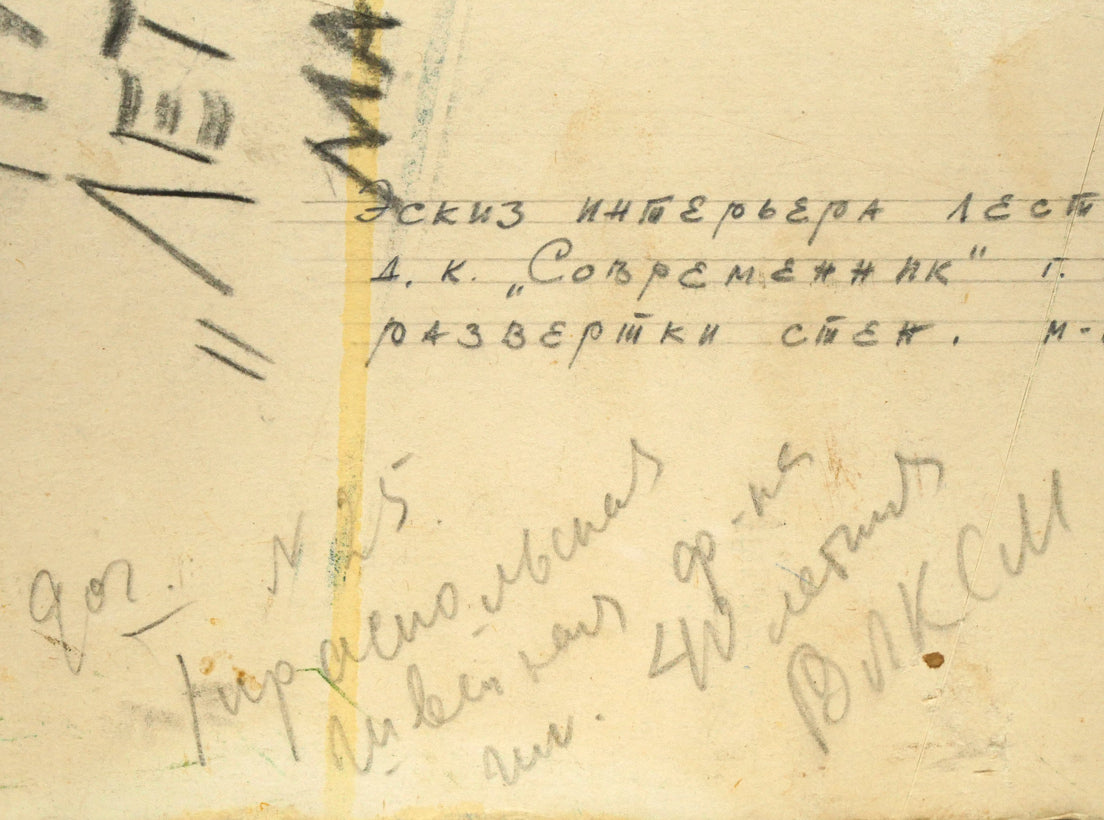 Эскиз интерьера лест
д. к. „Современник" г.
развертки стен. м-
дог. N 25
Тираспольская
швейная ф-ка
им. 40 летия
ВЛКСМ
"ЛЕТ